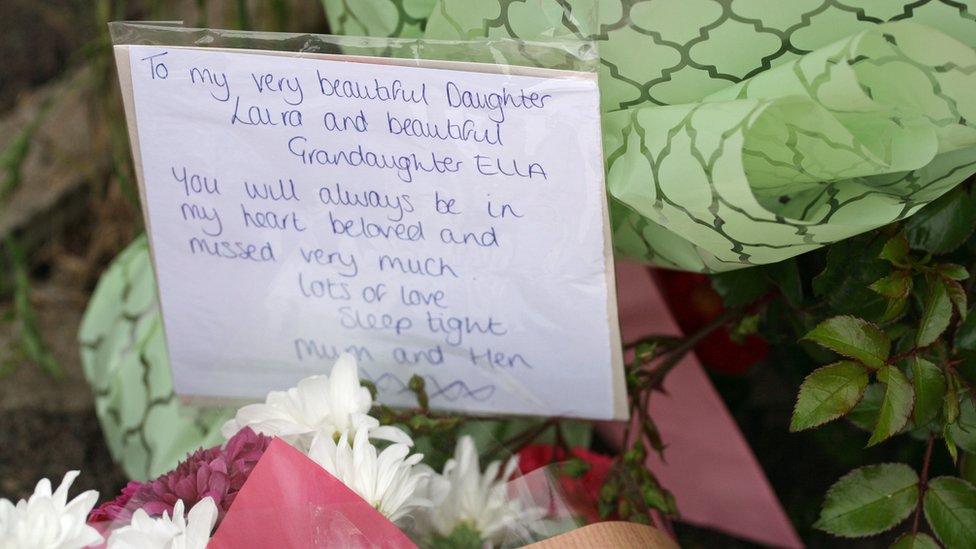 To my very beautiful Daughter
Laura and beautiful
Grandaughter ELLA
You will always be in
my heart beloved and
missed very much
lots of love
Sleep tight
Mum and Hen
xxxx